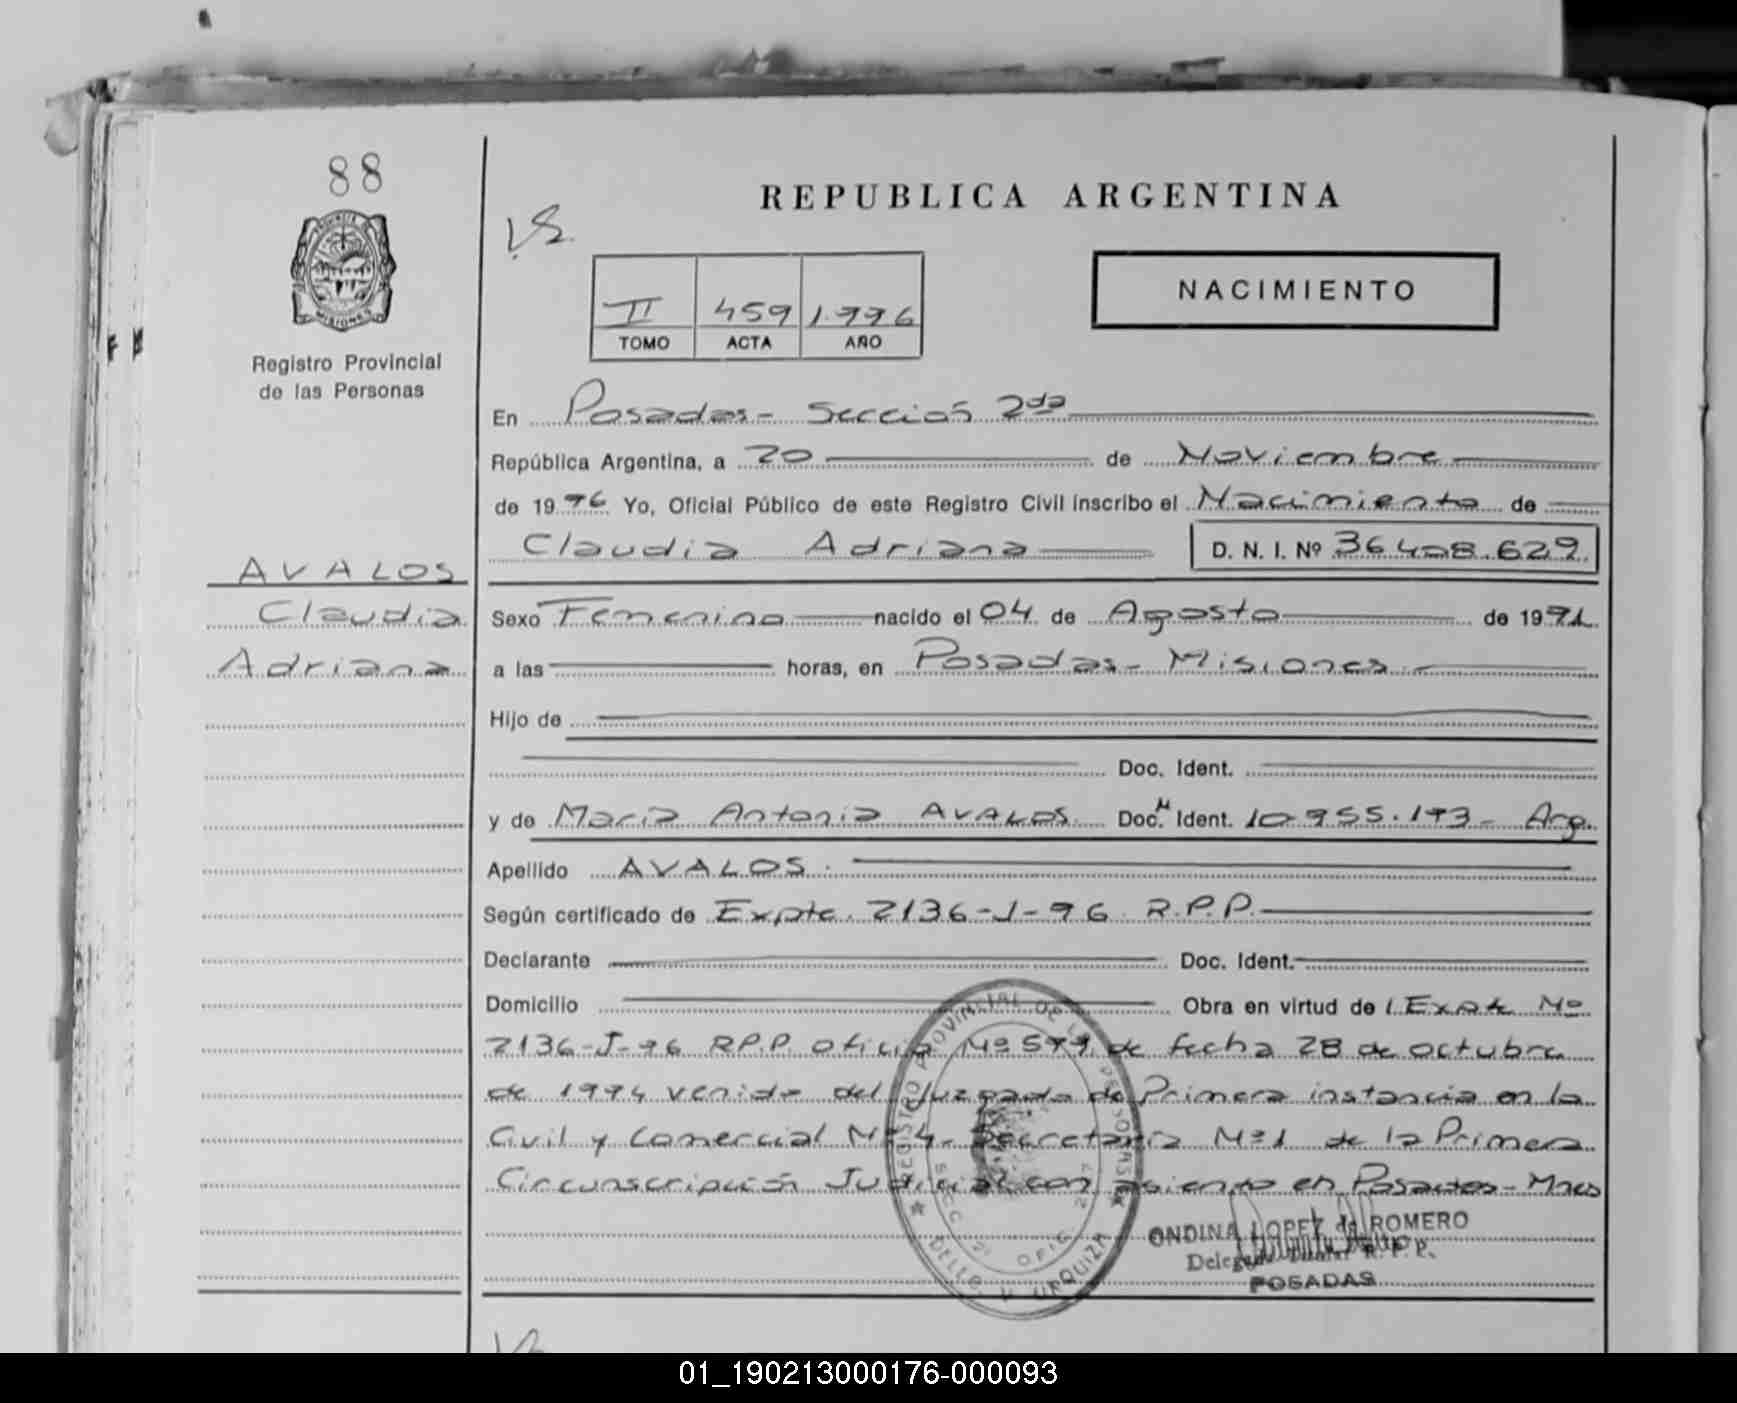 88
REPUBLICA ARGENTINA
VS.
II 459 1.996
TOMO ACTA AÑO
NACIMIENTO
PROVINCIA DE MISIONES
Registro Provincial
de las Personas
En Posadas - Sección 2da
República Argentina, a 20 de Noviembre
de 1996 Yo, Oficial Público de este Registro Civil inscribo el Nacimiento de
Claudia Adriana D. N. I. Nº 36.408.629
AVALOS
Claudia
Adriana
Sexo Femenino nacido el 04 de Agosto de 1991
a las horas, en Posadas - Misiones -
Hijo de
Doc. Ident.
y de Maria Antonia AVALOS Doc. M Ident. 10.955.173 - Arg.
Apellido AVALOS.
Según certificado de Expte. 2136-J-96 R.P.P.
Declarante Doc. Ident.
Domicilio Obra en virtud de / Expte Nº
2136-J-96 R.P.P. oficio Nº 599 de fecha 28 de octubre
de 1994 venido del Juzgado de Primera instancia en lo
Civil y Comercial Nº 4 - Secretaría Nº 1 de la Primera
Circunscripción Judicial con asiento en Posadas - Mnes
REGISTRO PROVINCIAL DE LAS PERSONAS
DELEG. V. URQUIZA
ONDINA LOPEZ de ROMERO
R. P. P.
POSADAS
01_190213000176-000093